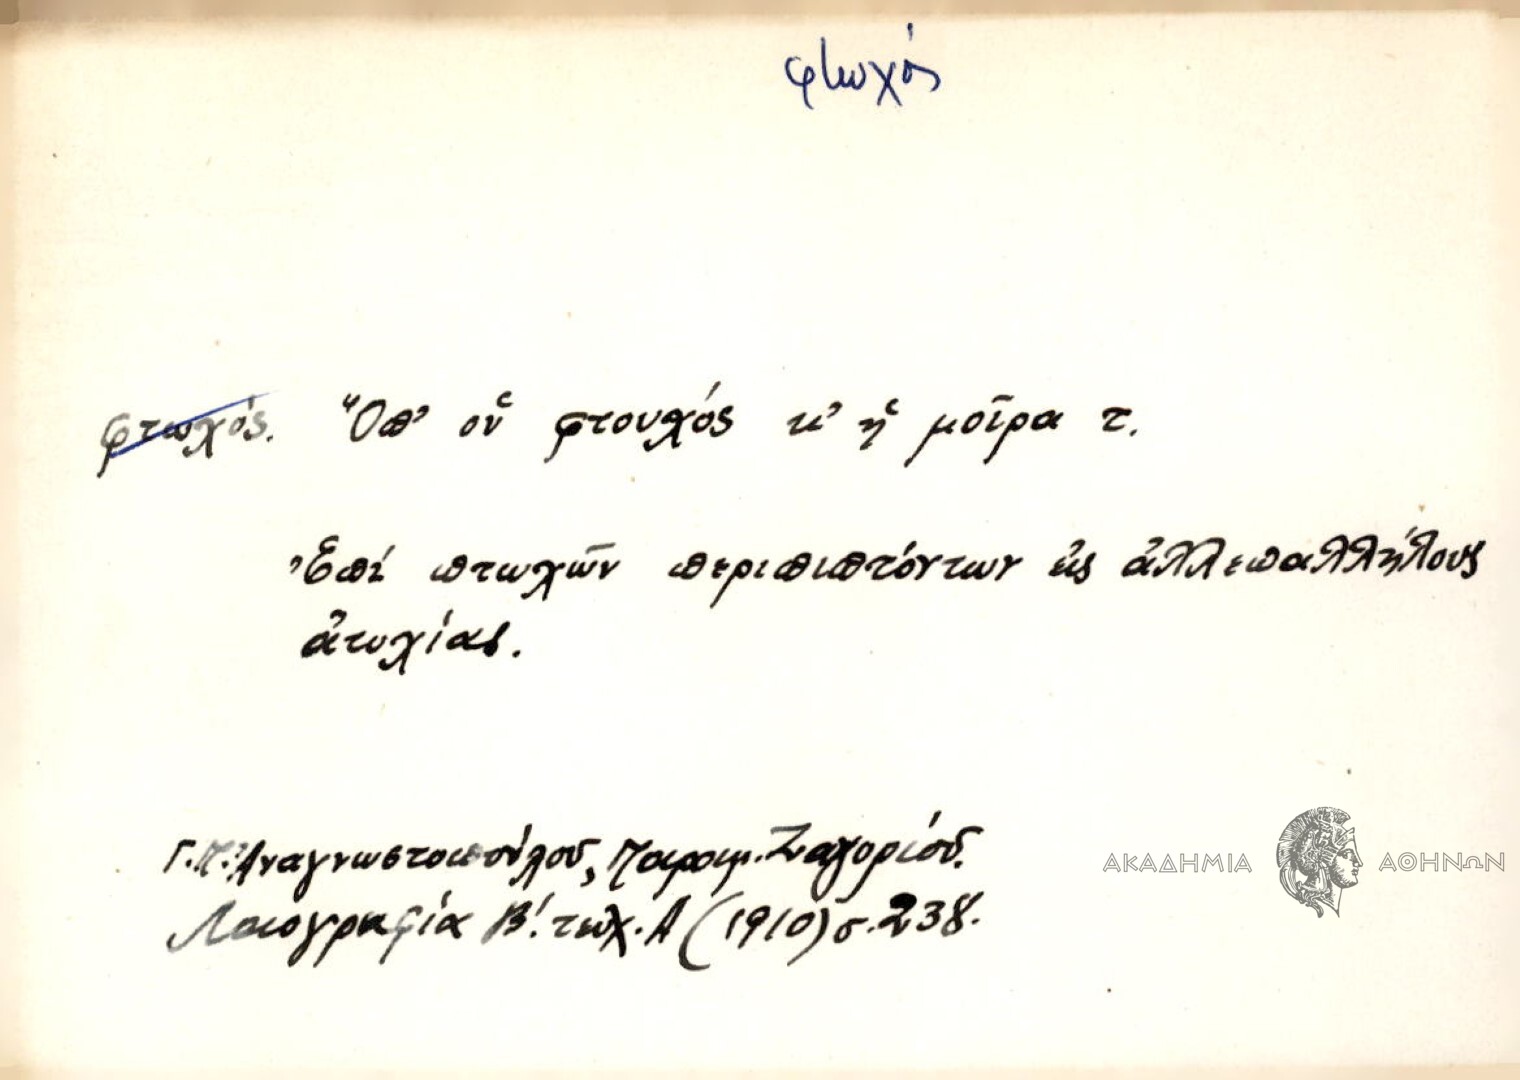 φτωχός
φτωχός. Ὅπ' οὑ φτουχός κ' ἡ μοῖρα τ.
Ἐπί πτωχῶν περιπιπτόντων εἰς ἀλλεπαλλήλους
ἀτυχίας.
Γ. Π. Ἀναγνωστοπούλου, Παροιμ. Ζαγορίου.
Λαογραφία Β'. τευχ. Α (1910) σ. 238.
ΑΚΑΔΗΜΙΑ ΑΘΗΝΩΝ